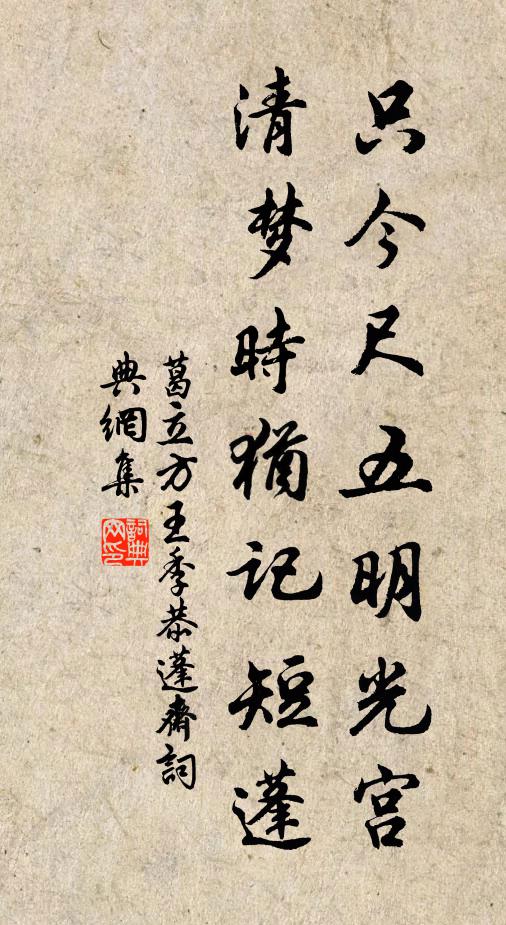 只今尺五明光宫
清梦時猶记短蓬
葛立方王季恭蓬齋詞
典網集
詞典
网印